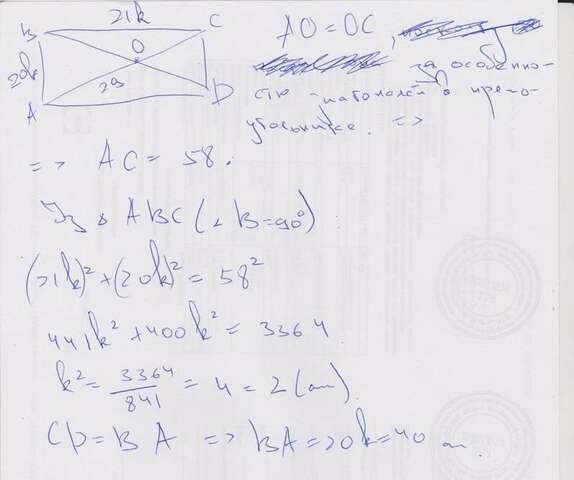 21k
B C
O
20k
29
A D
AO = OC,
за особенно-
стю диагоналей в прямо-
угольнике. =>
=> AC = 58.
Из △ ABC (∠ B = 90°)
(21k)² + (20k)² = 58²
441k² + 400k² = 3364
k² = 3364/841 = 4 = 2 (см).
CD = BA => BA = 20k = 40 см.